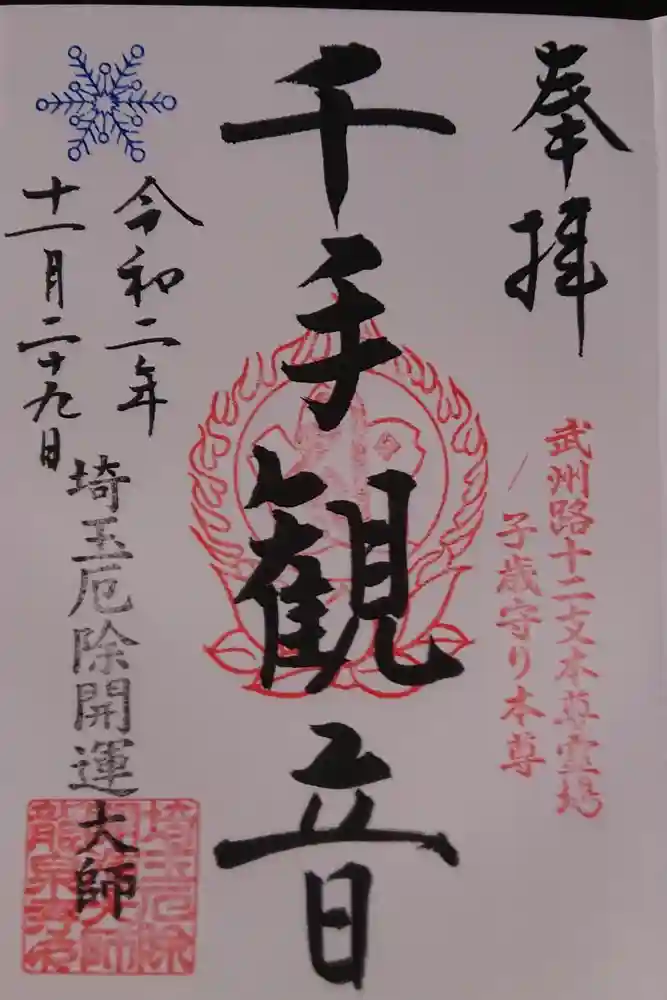 奉拝
武州路十二支本尊霊場
/子歳守り本尊
千手観音
令和二年
十一月二十九日
埼玉厄除開運大師
埼玉厄除
開運大師
龍泉寺